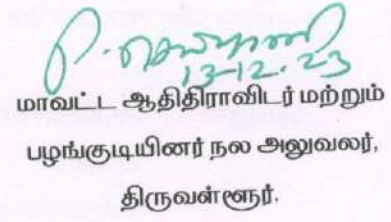 P. செல்வராணி
13-12-23
மாவட்ட ஆதிதிராவிடர் மற்றும்
பழங்குடியினர் நல அலுவலர்,
திருவள்ளூர்.